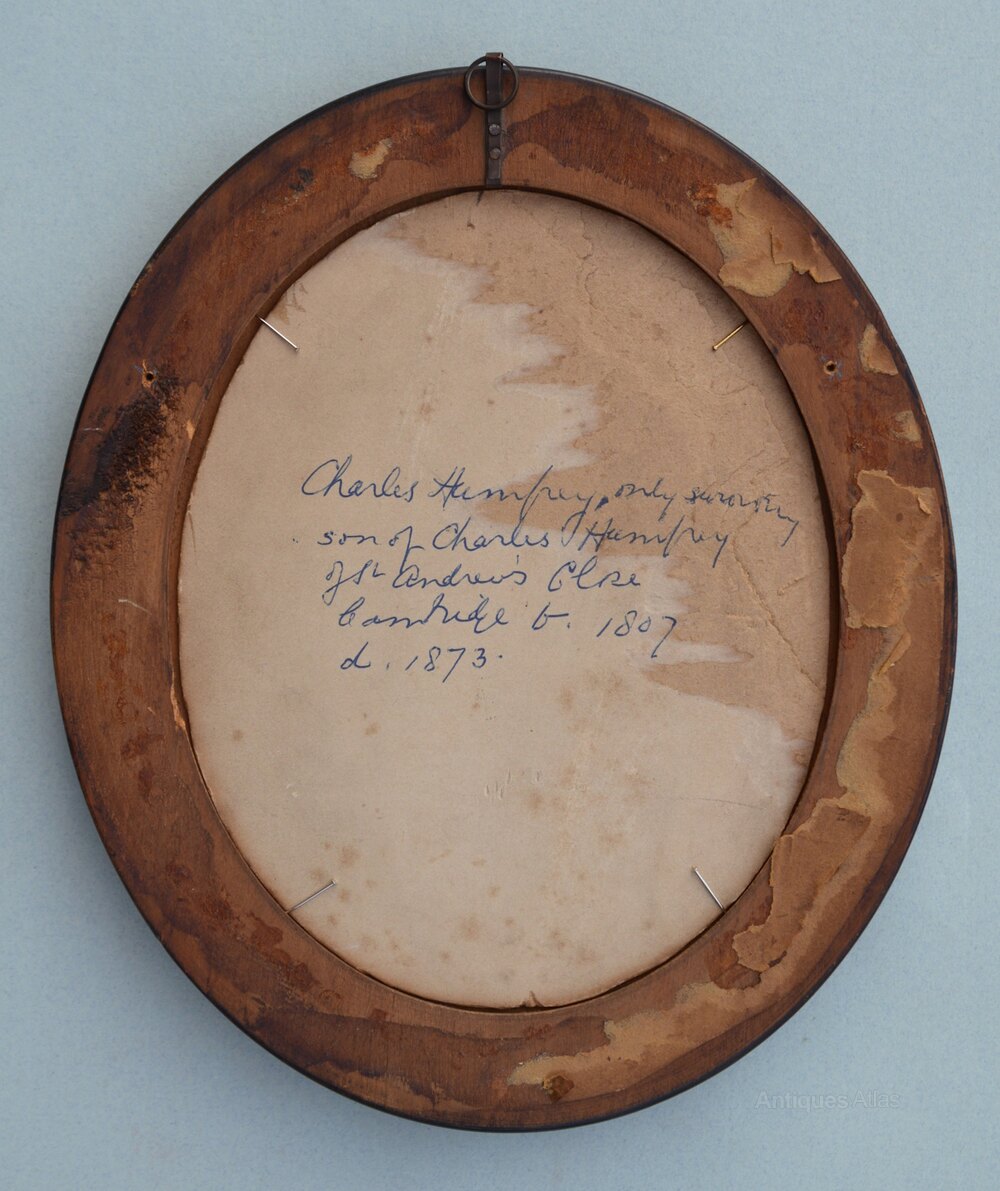 Charles Humfrey, only surviving
son of Charles Humfrey
of St Andrew's Close
Cambridge b. 1807
d. 1873.
Antiques Atlas